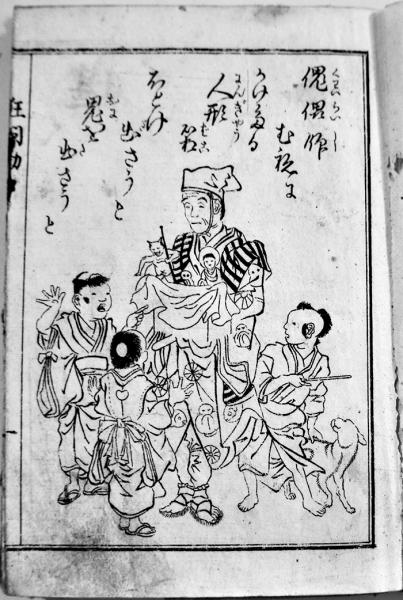 傀儡師
むねに
かけたる
人形
箱
ほとけ
出さうと
鬼を
出さうと